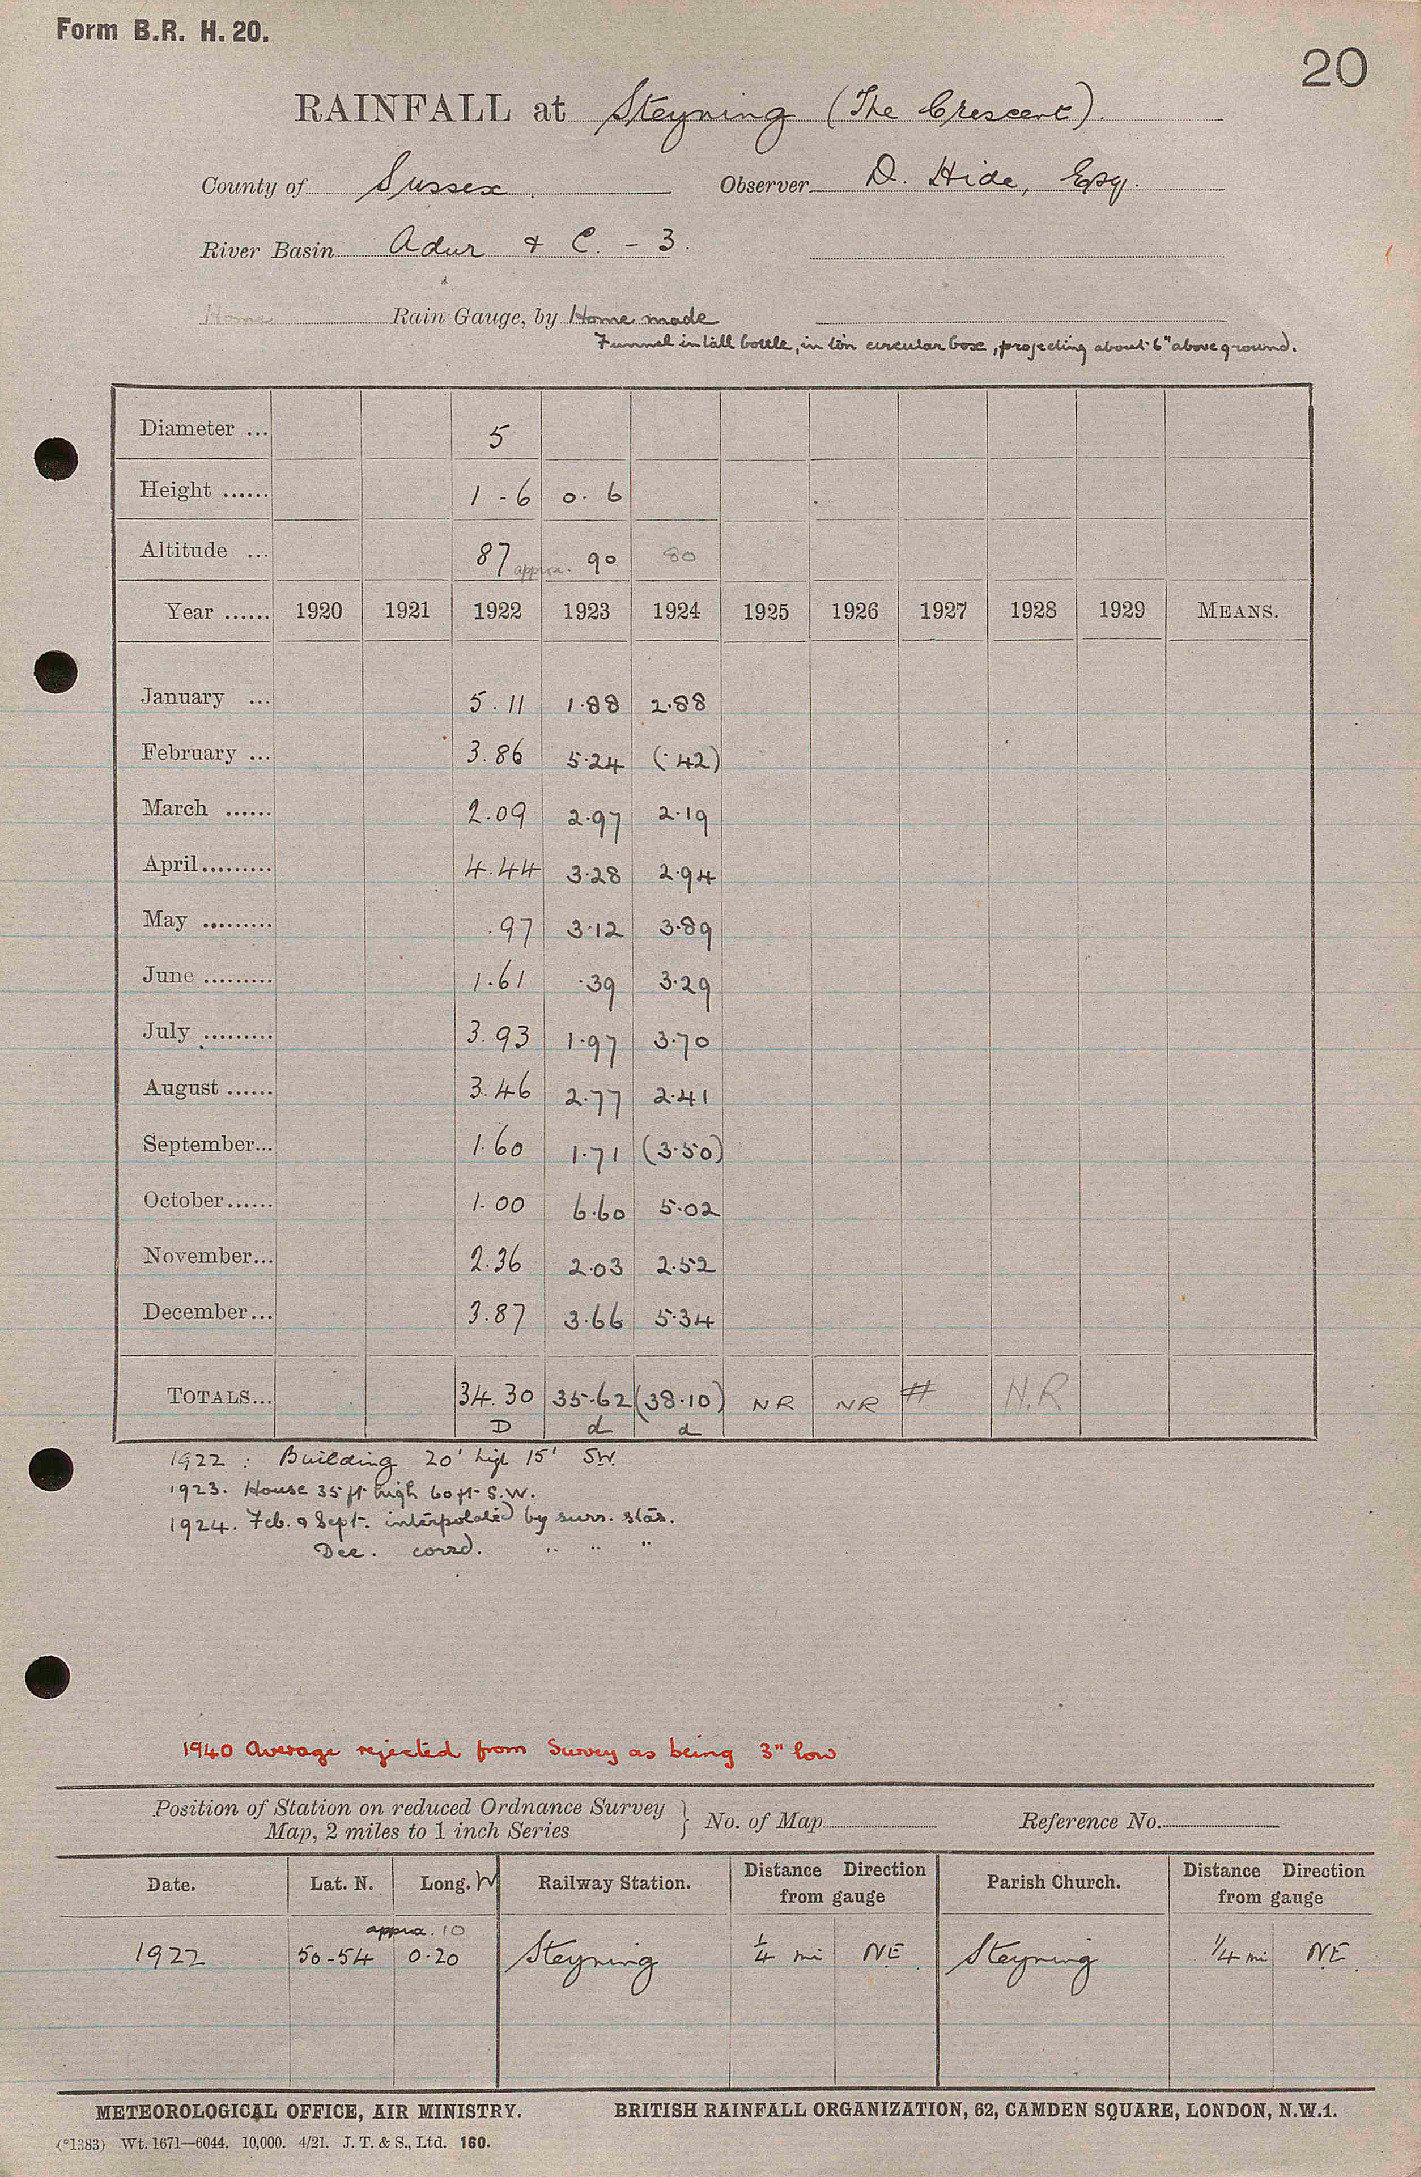 Form B.R. H. 20.
20
RAINFALL at Steyning (The Crescent)
County of Sussex. Observer D. Hide, Esq.
River Basin Adur & C. - 3.
Home Rain Gauge, by Home made
Funnel in tall bottle, in tin circular box, projecting about 6" above ground.
Diameter ... 5
Height ...... 1 - 6 0. 6
Altitude ... 87 approx. 90 80
Year ...... 1920 1921 1922 1923 1924 1925 1926 1927 1928 1929 MEANS.
January ... 5.11 1.88 2.88
February ... 3.86 5.24 (.42)
March ...... 2.09 2.97 2.19
April......... 4.44 3.28 2.94
May ......... .97 3.12 3.89
June ......... 1.61 .39 3.29
July ......... 3.93 1.97 3.70
August ...... 3.46 2.77 2.41
September... 1.60 1.71 (3.50)
October...... 1.00 6.60 5.02
November... 2.36 2.03 2.52
December... 3.87 3.66 5.34
TOTALS... 34.30 35.62 (38.10) NR NR # N.R
D d d
1922 : Building 20' high 15' SW.
1923. House 35 ft high 60 ft S.W.
1924. Feb. & Sept. interpolated by surr. stas.
Dec. corrd. " " "
1940 Average rejected from Survey as being 3" low
Position of Station on reduced Ordnance Survey Map, 2 miles to 1 inch Series } No. of Map Reference No.
Date. Lat. N. Long. W Railway Station. Distance Direction from gauge Parish Church. Distance Direction from gauge
approx. 10
1922 50-54 0.20 Steyning 1/4 mi NE Steyning 1/4 mi NE.
METEOROLOGICAL OFFICE, AIR MINISTRY. BRITISH RAINFALL ORGANIZATION, 62, CAMDEN SQUARE, LONDON, N.W.1.
(*1383) Wt. 1671—6044. 10,000. 4/21. J. T. & S., Ltd. 160.